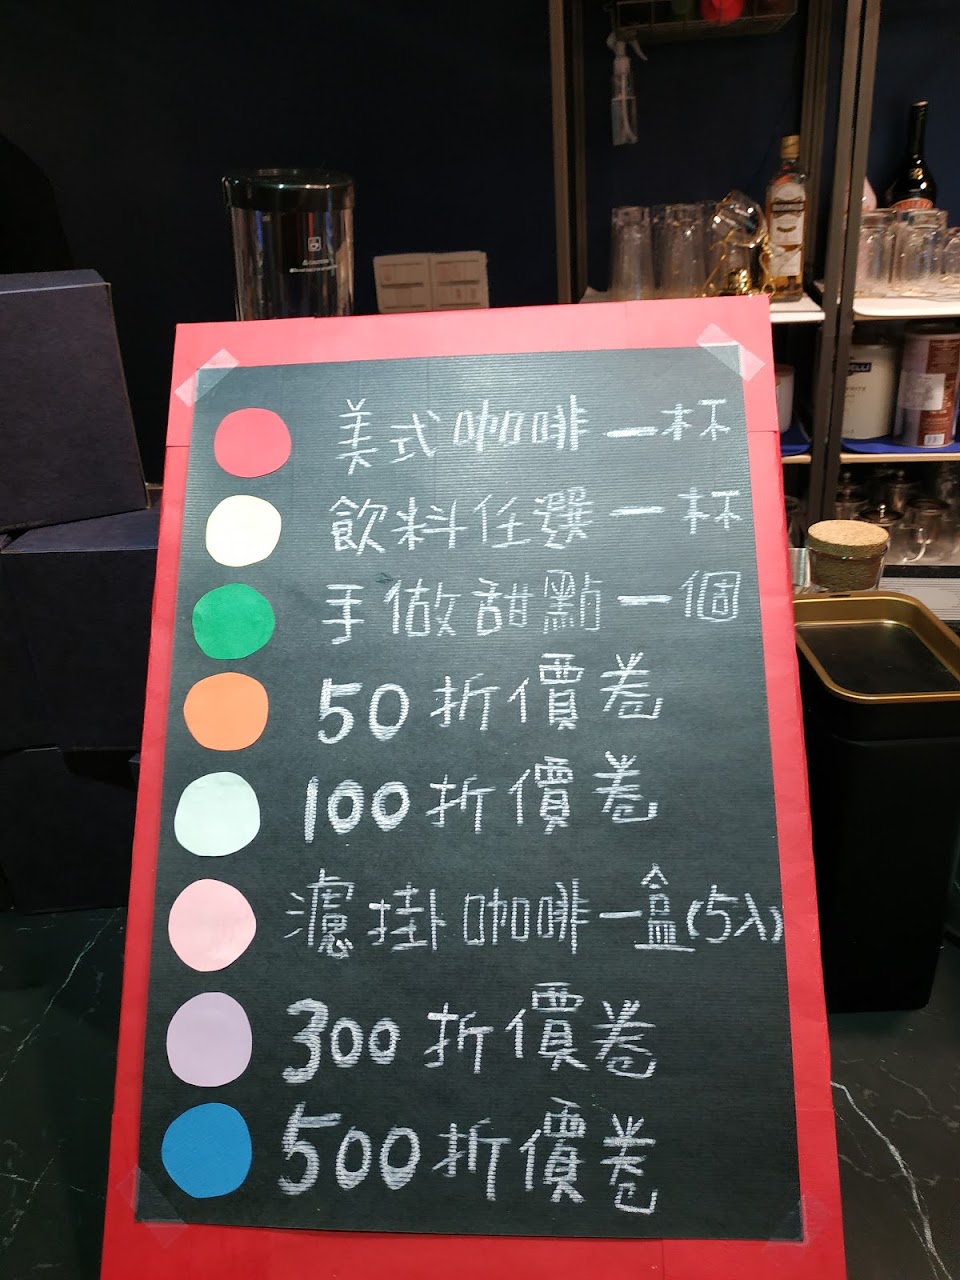 美式咖啡一杯
飲料任選一杯
手做甜點一個
50折價卷
100折價卷
濾掛咖啡一盒(5入)
300折價卷
500折價卷